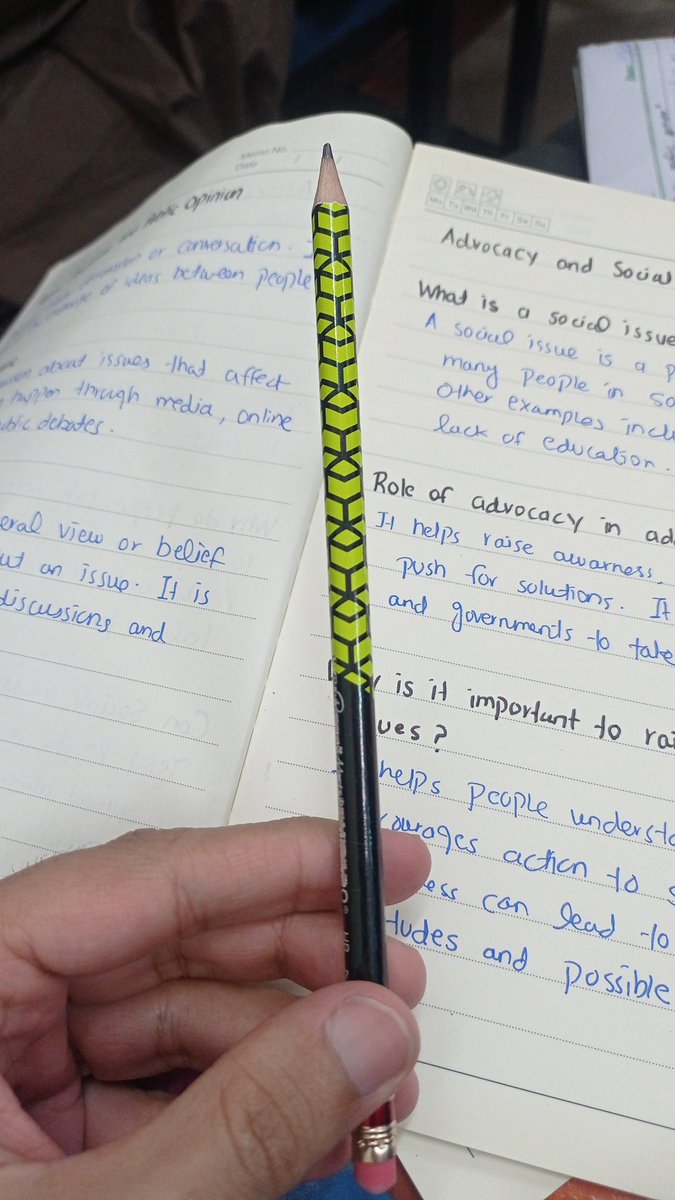 Memo No.
Date / /
Public Opinion
discussion or conversation.
of ideas between people
about issues that affect
happen through media, online
public debates.
eral view or belief
ut an issue. It is
discussions and
Mo Tu We Th Fr Sa Su
Advocacy and Social
What is a social issue
A social issue is a p
many people in so
Other examples inclu
lack of education.
Role of advocacy in ad
It helps raise awarness.
push for solutions. It
and governments to take
is it important to rai
ues?
helps people understa
courages action to s
ess can lead to
tudes and possible